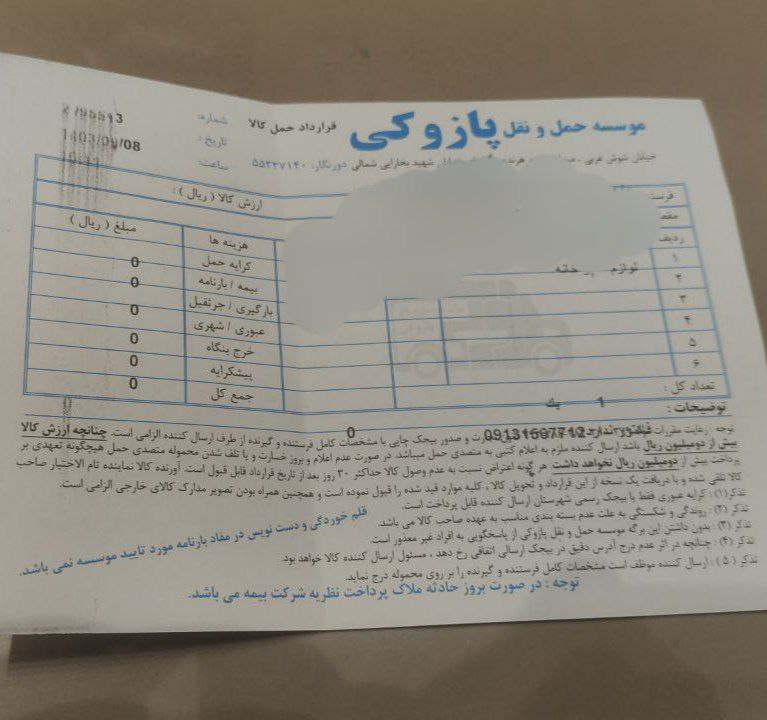 موسسه حمل و نقل پازوکی
قرارداد حمل کالا
شماره: 2795513
تاریخ: 1403/09/08
ساعت:
خیابان شوش غربی شهید بخارایی شمالی دورنگار: ۵۵۳۳۷۱۴۰
ارزش کالا ( ریال ) :
ردیف هزینه ها مبلغ ( ریال )
۱ لوازم خانه کرایه حمل 0
۲ بیمه / بارنامه 0
۳ بارگیری / جرثقیل 0
۴ عبوری / شهری 0
۵ خرج بنگاه 0
۶ پیشکرایه 0
تعداد کل : 1 یک جمع کل 0
توضیحات : فاکتور ندارد-09131507712 0
توجه : رعایت مقررات و صدور بیجک چاپی با مشخصات کامل فرستنده و گیرنده از طرف ارسال کننده الزامی است. چنانچه ارزش کالا
بیش از دومیلیون ریال باشد ارسال کننده ملزم به اعلام کتبی به متصدی حمل میباشد. در صورت عدم اعلام و بروز خسارت و یا تلف شدن محموله متصدی حمل هیچگونه تعهدی بر
پرداخت بیش از دومیلیون ریال نخواهد داشت. هر گونه اعتراض نسبت به عدم وصول کالا حداکثر ۳۰ روز بعد از تاریخ قرارداد قابل قبول است. آورنده کالا نماینده تام الاختیار صاحب
کالا تلقی شده و با دریافت یک نسخه از این قرارداد و تحویل کالا ، کلیه موارد قید شده را قبول نموده است و همچنین همراه بودن تصویر مدارک کالای خارجی الزامی است.
تذکر(۱) : کرایه عبوری فقط با بیجک رسمی شهرستان ارسال کننده قابل پرداخت است.
تذکر (۲) : روندگی و شکستگی به علت عدم بسته بندی مناسب به عهده صاحب کالا می باشد.
تذکر (۳) : بدون داشتن این برگه موسسه حمل و نقل پازوکی از پاسخگویی به افراد غیر معذور است.
تذکر (۴) : چنانچه در اثر عدم درج آدرس دقیق در بیجک ارسالی اتفاقی رخ دهد ، مسئول ارسال کننده کالا خواهد بود.
تذکر ( ۵ ) : ارسال کننده موظف است مشخصات کامل فرستنده و گیرنده را بر روی محموله درج نماید.
قلم خوردگی و دست نویس در مفاد بارنامه مورد تایید موسسه نمی باشد.
توجه : در صورت بروز حادثه ملاک پرداخت نظریه شرکت بیمه می باشد.